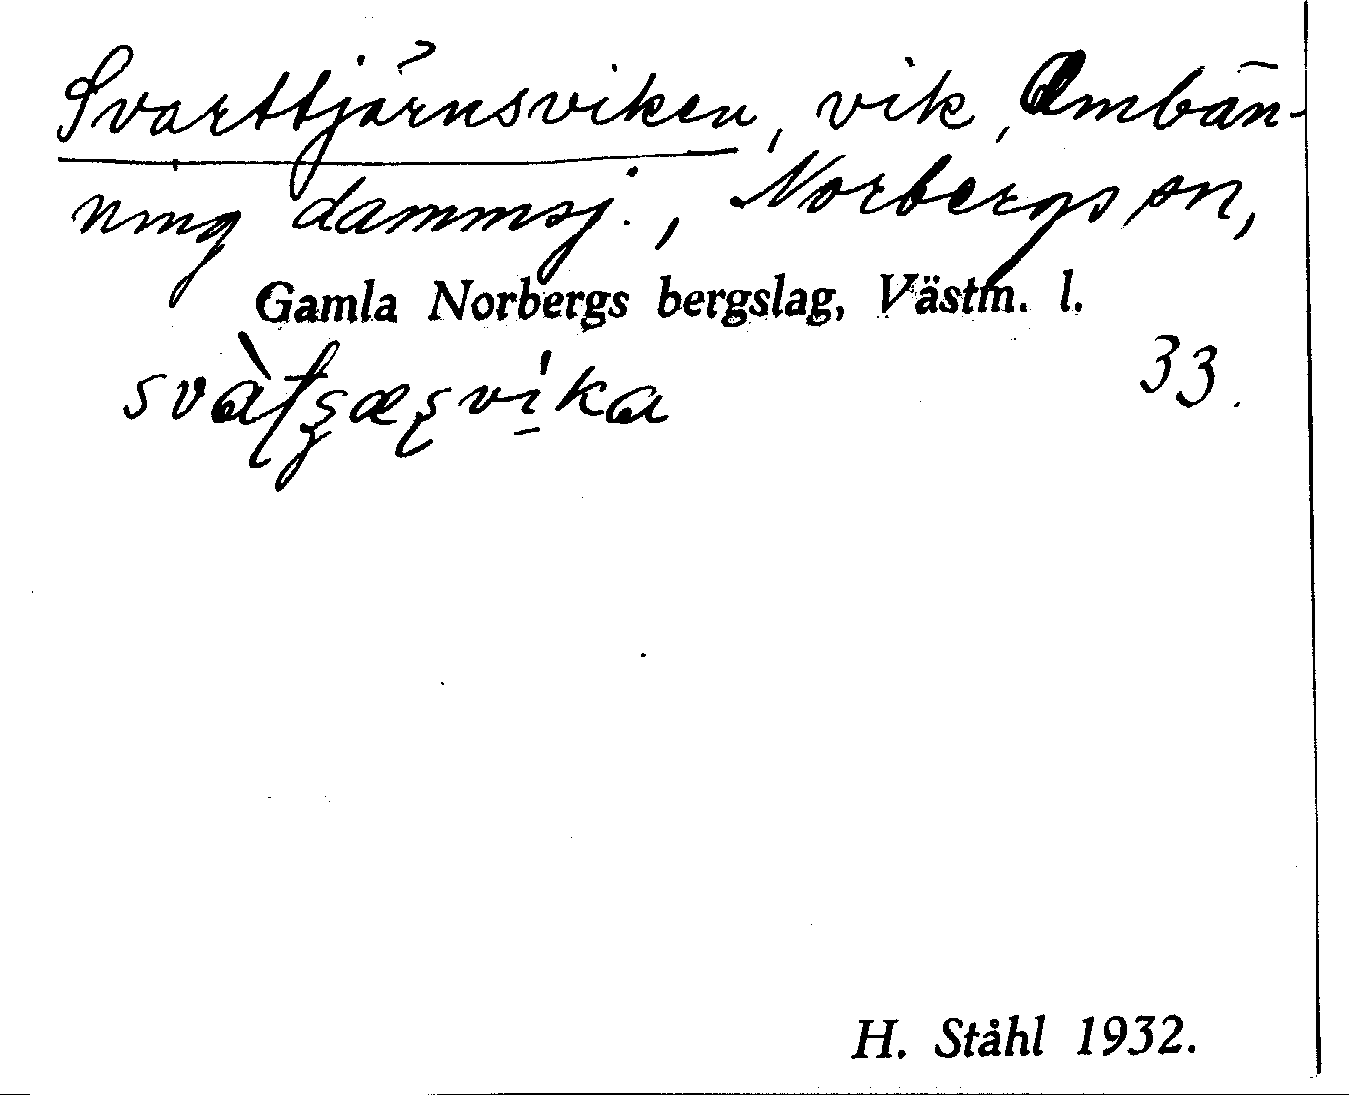 Svarttjärnsviken, vik, Ombän-
ning dammsj., Norbergs sn,
Gamla Norbergs bergslag, Västm. l.
33.
H. Ståhl 1932.